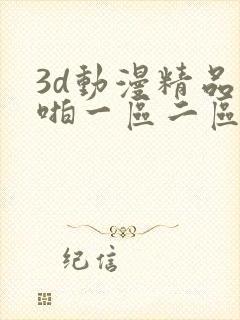 3d動漫精品
啪一區二區
纪信